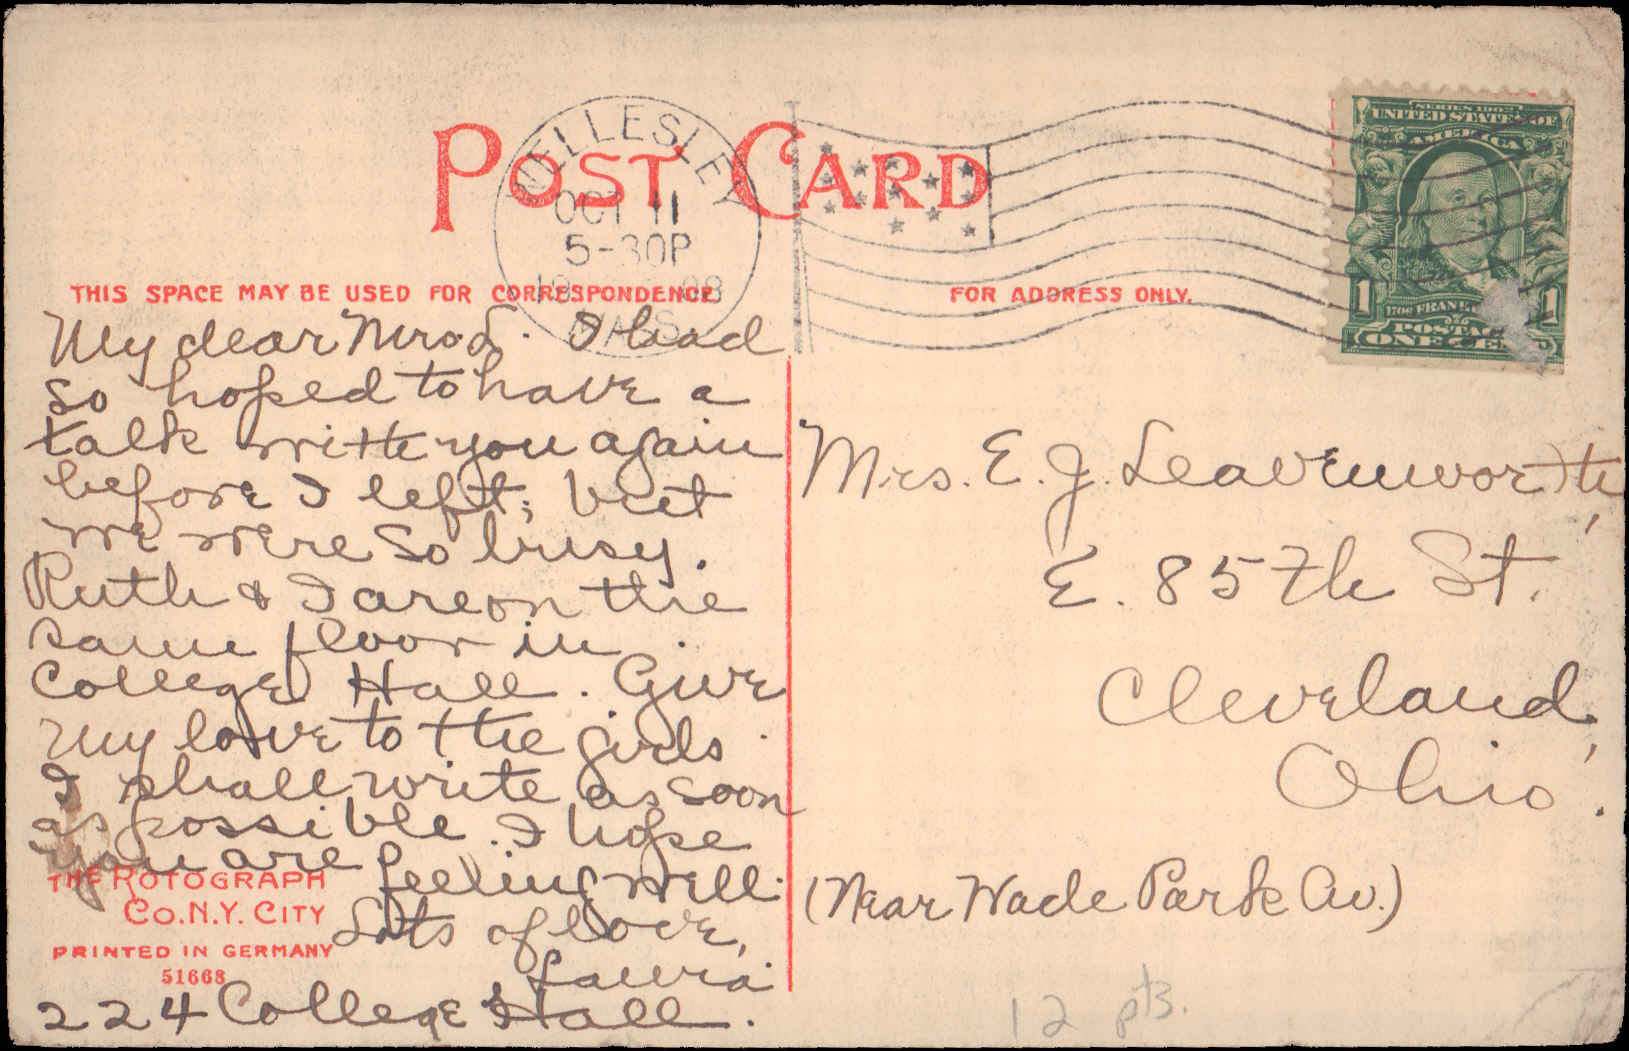 POST CARD
WELLESLEY
OCT 11
5-30P
1908
MASS.
SERIES 1902
UNITED STATES OF
AMERICA
1 1
POSTAGE
ONE CENT
THIS SPACE MAY BE USED FOR CORRESPONDENCE
FOR ADDRESS ONLY.
My dear Mrs. L. I had
so hoped to have a
talk with you again
before I left; but
we were so busy.
Ruth & I are on the
same floor in
College Hall. Give
my love to the girls.
I shall write as soon
as possible. I hope
you are feeling well.
Lots of love,
Laura
224 College Hall.
Mrs. E. J. Leavenworth,
E. 85th St.
Cleveland,
Ohio.
(Near Wade Park Av.)
THE ROTOGRAPH
CO. N.Y. CITY
PRINTED IN GERMANY
51668
12 pts.